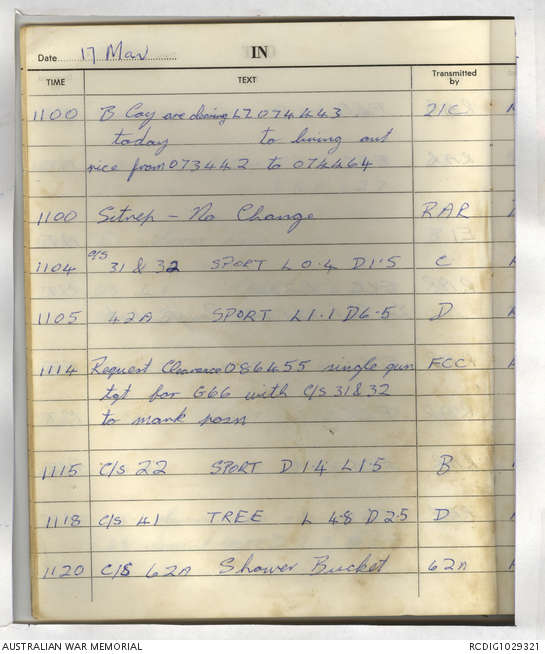 Date 17 Mar IN
TIME TEXT Transmitted by
1100 B Coy are clearing LZ 074443 2IC
today to bring out
rice from 073442 to 074464
1100 Sitrep - No Change RAR
1104 c/s 31 & 32 SPORT L 0.4 D 1.5 C
1105 42A SPORT L1.1 D6.5 D
1114 Request Clearance 086455 single gun FCC
tgt for G66 with C/S 31 & 32
to mark posn
1115 C/s 22 SPORT D 1.4 L 1.5 B
1118 C/s 41 TREE L 4.8 D 2.5 D
1120 C/S 62A Shower Bucket 62A
AUSTRALIAN WAR MEMORIAL RCDIG1029321